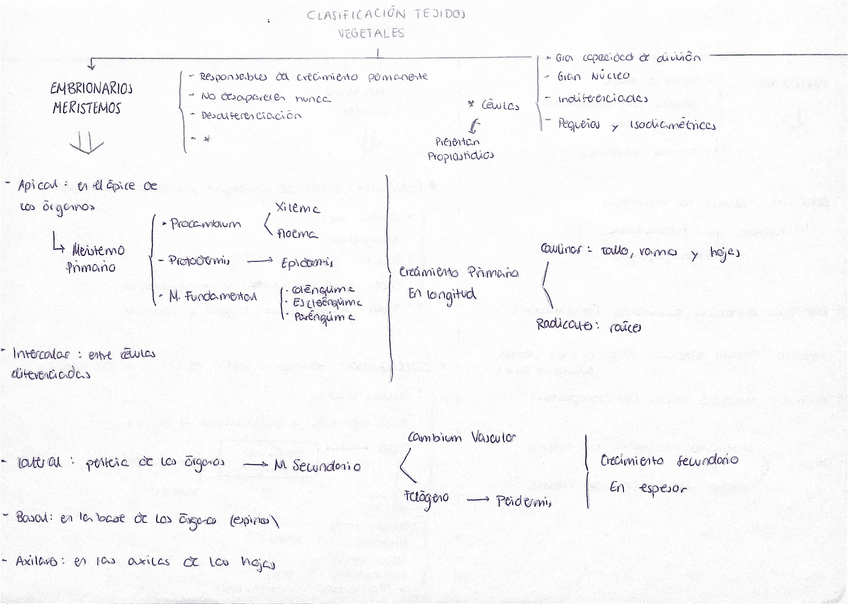 CLASIFICACIÓN TEJIDOS
VEGETALES
EMBRIONARIOS
MERISTEMOS
- Responsables del crecimiento permanente
- No desaparecen nunca
- Desdiferenciación
- *
* Células
Presentan
Proplastidios
- Gran capacidad de división
- Gran Núcleo
- Indiferenciadas
- Pequeñas y Isodiamétricas
- Apical: en el ápice de
los órganos
Meristemo
Primario
- Procambium
Xilema
Floema
- Protodermis → Epidermis
- M. Fundamental
- Colénquima
- Esclerénquima
- Parénquima
Crecimiento Primario
En longitud
Caulinar: tallo, ramas y hojas
Radicular: raíces
- Intercalar: entre células
diferenciadas
- lateral: periferia de los órganos → M. Secundario
Cambium Vascular
Felógeno → Peridermis
Crecimiento secundario
En espesor
- Basal: en la base de los órganos (espinas)
- Axilares: en las axilas de las hojas